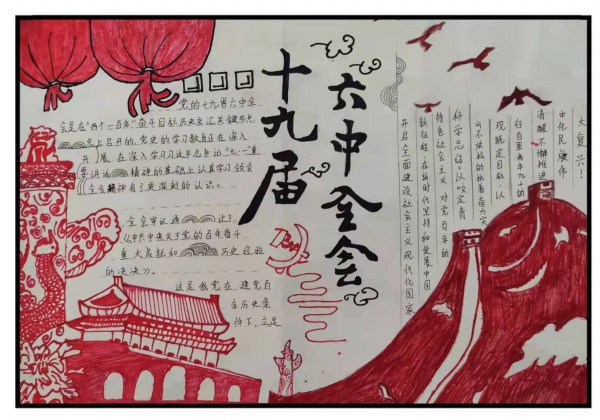 十九届
六中全会
党的十九届六中全
会是在"两个一百年"奋斗目标历史交汇关键节点
上召开的,党史的学习教育正在深入
开展,在深入学习习近平总书记"七一"重
要讲话精神的基础上认真学习领会
全会精神有了更深刻的认识。
全会审议通过了
《中共中央关于党的百年奋斗
重大成就和历史经验
的决议》。
这是我党在建党百
年历史条
件下,立足
开启全面建设社会主义现代化国家
新征程,在新时代坚持和发展中国
特色社会主义,对党百年的
科学总结,以咬定青
山不放松的执着奋力实
现既定目标,以
行百里者半九十的
清醒不懈推进
中华民族伟
大复兴!